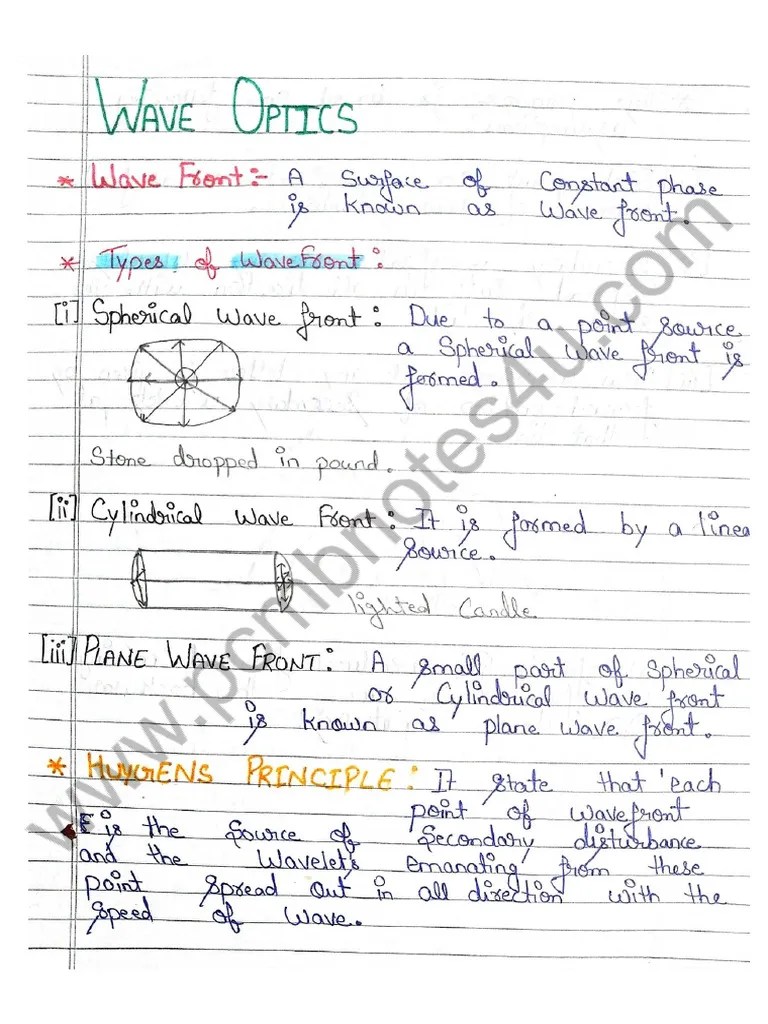 WAVE OPTICS
* Wave Front:- A Surface of Constant phase
is known as Wave front.
* Types of WaveFront:
[i] Spherical Wave front: Due to a point source
a Spherical Wave front is
formed.
Stone dropped in pound.
[ii] Cylindrical Wave Front: It is formed by a linea
source.
lighted Candle
[iii] PLANE WAVE FRONT: A small part of Spherical
or Cylindrical Wave front
is known as plane wave front.
* HUYGENS PRINCIPLE: It state that each
point of wavefront
is the source of Secondary disturbance
and the Wavelet's emanating from these
point spread out in all direction with the
speed of wave.
www.pcmbnotes4u.com